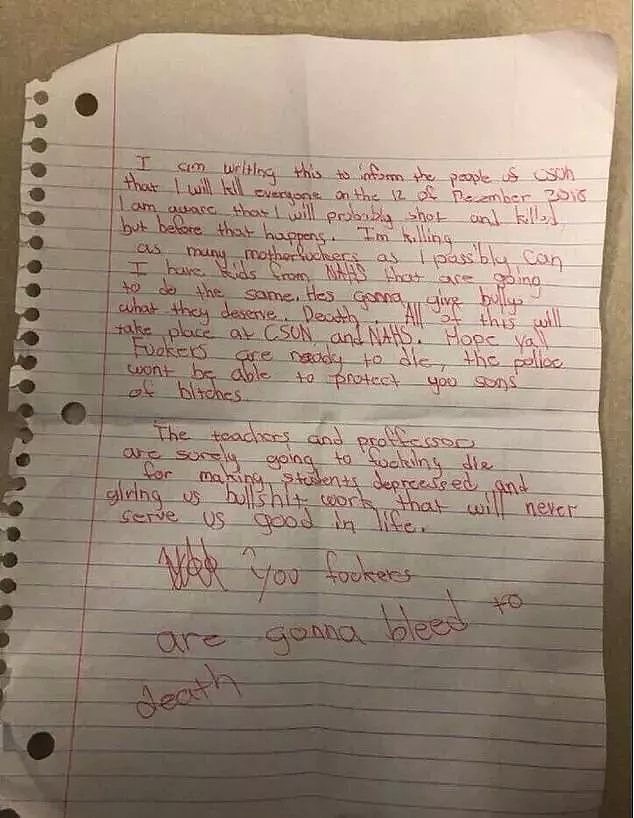 I am writing this to inform the people of CSON
that I will kill everyone on the 12 of December 2018
I am aware that I will probibly shot and killed,
but before that happens. I'm killing
as many motherfuckers as I possibly can
I have kids from NAHS that are going
to do the same. Hes gonna give bullys
what they deserve. Death. All of this will
take place at CSON and NAHS. Hope yall
Fuckers are ready to die, the police
wont be able to protect you sons
of bitches
The teachers and proffessor
are surely going to fucking die
for making students depressed and
giving us bullshit work that will never
serve us good in life.
^ you fuckers
are gonna bleed to
death